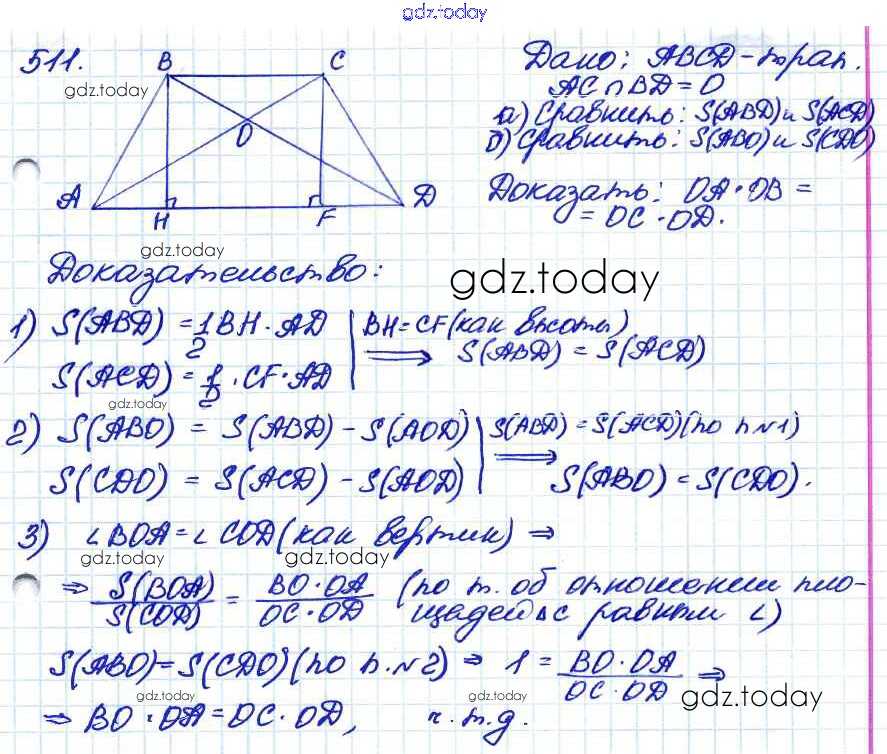 gdz.today
511.
gdz.today
B
C
O
A
H
F
D
Дано: ABCD-трап.
AC∩BD=O
а) Сравнить: S(ABD) и S(ACD)
б) Сравнить: S(ABO) и S(CDO)
Доказать: OA·OB =
= OC·OD.
gdz.today
Доказательство:
gdz.today
1) S(ABD) = 1/2 BH·AD | BH=CF (как высоты)
S(ACD) = 1/2 ·CF·AD | ⟹ S(ABD) = S(ACD)
gdz.today
2) S(ABO) = S(ABD) – S(AOD) | S(ABD) = S(ACD) (по п.№1)
S(CDO) = S(ACD) – S(AOD) | ⟹ S(ABO) = S(CDO).
3) ∠BOA=∠COD (как вертик) ⇒
gdz.today
gdz.today
⇒ S(BOA)/S(COD) = BO·OA/OC·OD (по т. об отношении пло-
щадей Δ с равным ∠)
S(ABO)=S(CDO) (по п.№2) ⇒ 1 = BO·OA/OC·OD ⇒
gdz.today
gdz.today
gdz.today
⇒ BO·OA=OC·OD, ч.т.д.